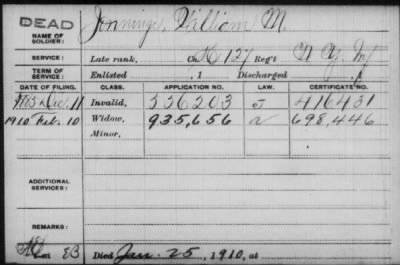 DEAD
NAME OF SOLDIER: Jennings, William M.
SERVICE: Late rank, Co. K 127 Reg't N. Y. Inf
TERM OF SERVICE: Enlisted , 1 Discharged , 1
DATE OF FILING. CLASS. APPLICATION NO. LAW. CERTIFICATE NO.
Dec. 11 Invalid, 556203 J 416431
1910 Feb. 10 Widow, 935,656 N 698,446
Minor,
ADDITIONAL SERVICES:
REMARKS:
EB Died Jan. 25, 1910, at